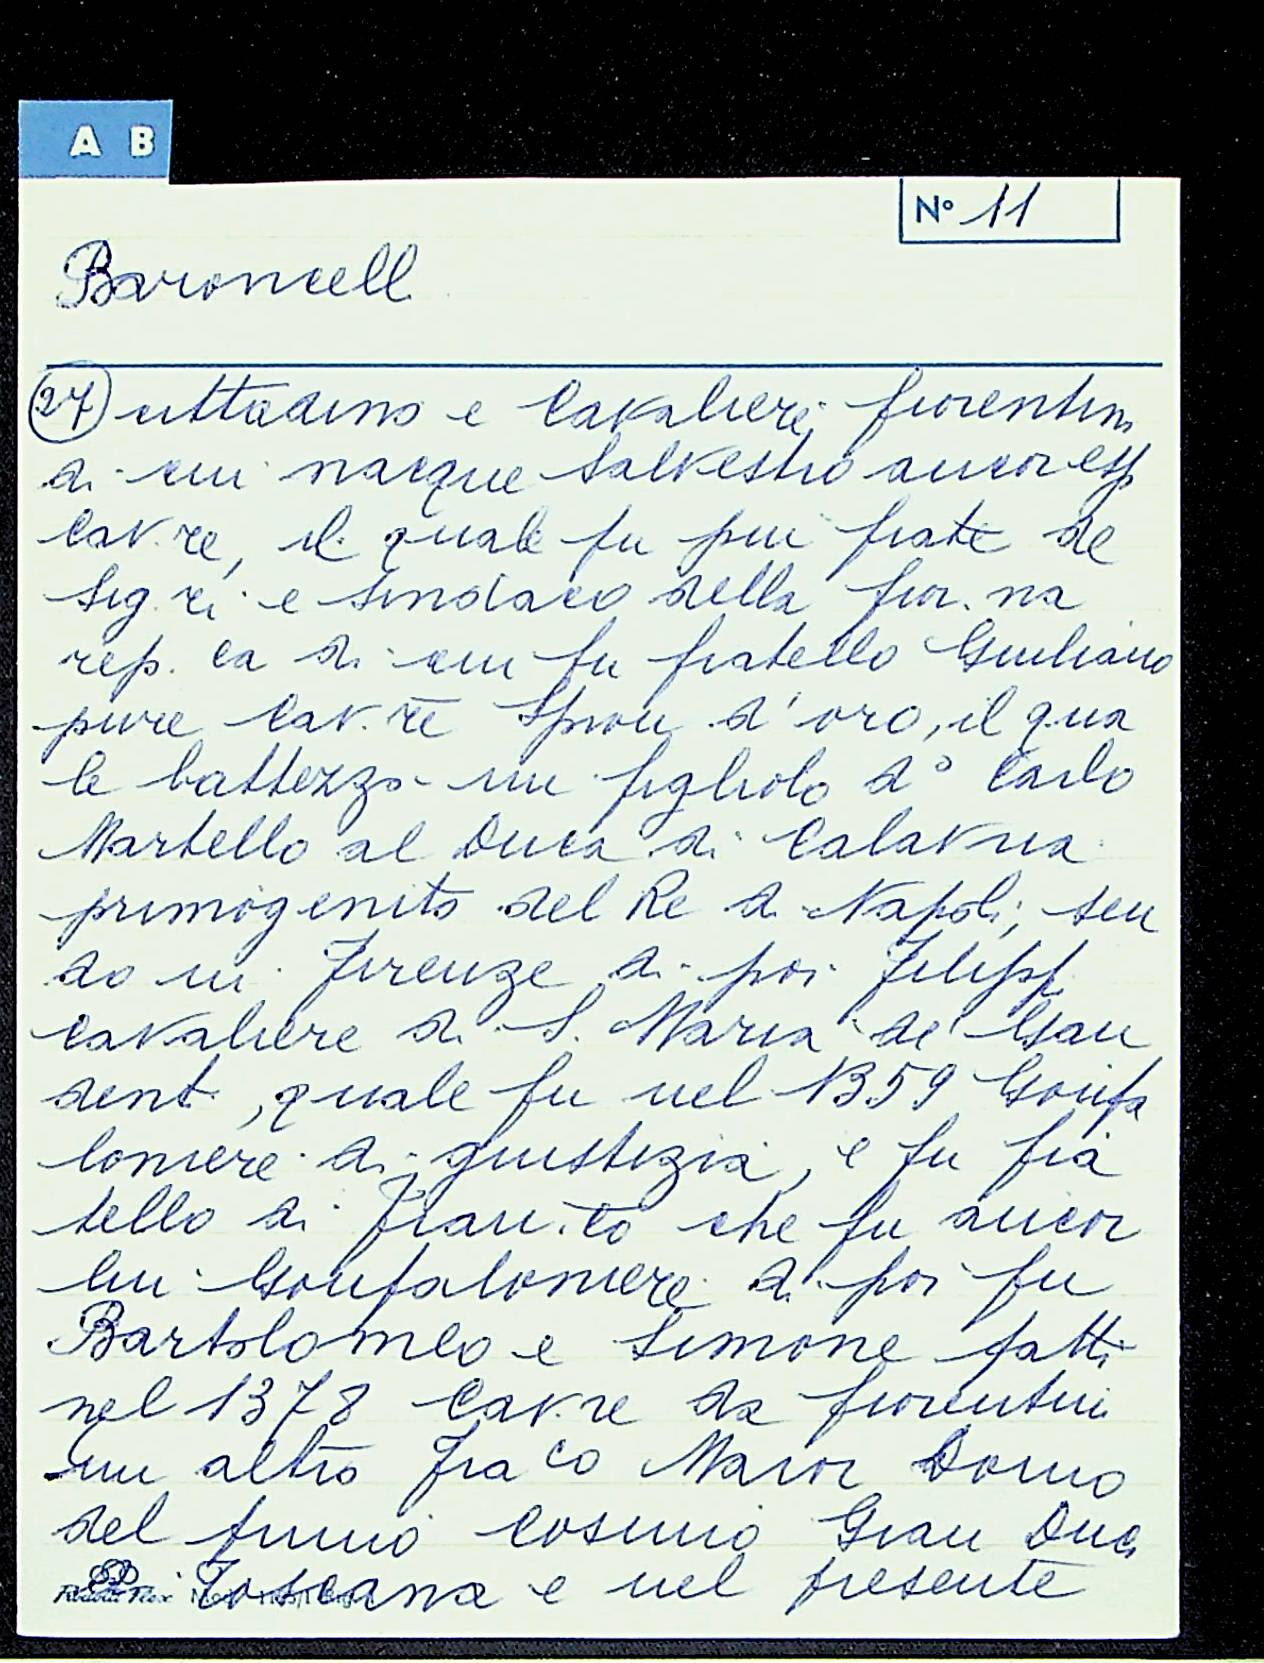 A B
N° 11
Baroncell
27 cittadino e Cavaliere fiorentin
di cui nacque Salvestro ancor ess
Cav.re, il quale fu poi frate de
Sig.ri e Sindaco della fior.na
rep.ca di cui fu fratello Giuliano
pure Cav.re Spron d'oro, il qua
le battezzo un figliolo d° Carlo
Martello al Duca di Calavria
primogenito del Re di Napoli, sen
do in Firenze di poi Filipp
Cavaliere di S. Maria de Gau
dent, quale fu nel 1359 Gonfa
loniere di giustizia, e fu fra
tello di Fran.co che fu ancor
lui Gonfaloniere di poi fu
Bartolomeo e Simone fatti
nel 1378 Cav.re da fiorentini
un altro Fraco Maior Domo
del primo Cosimo Gran Duca
Toscana e nel presente